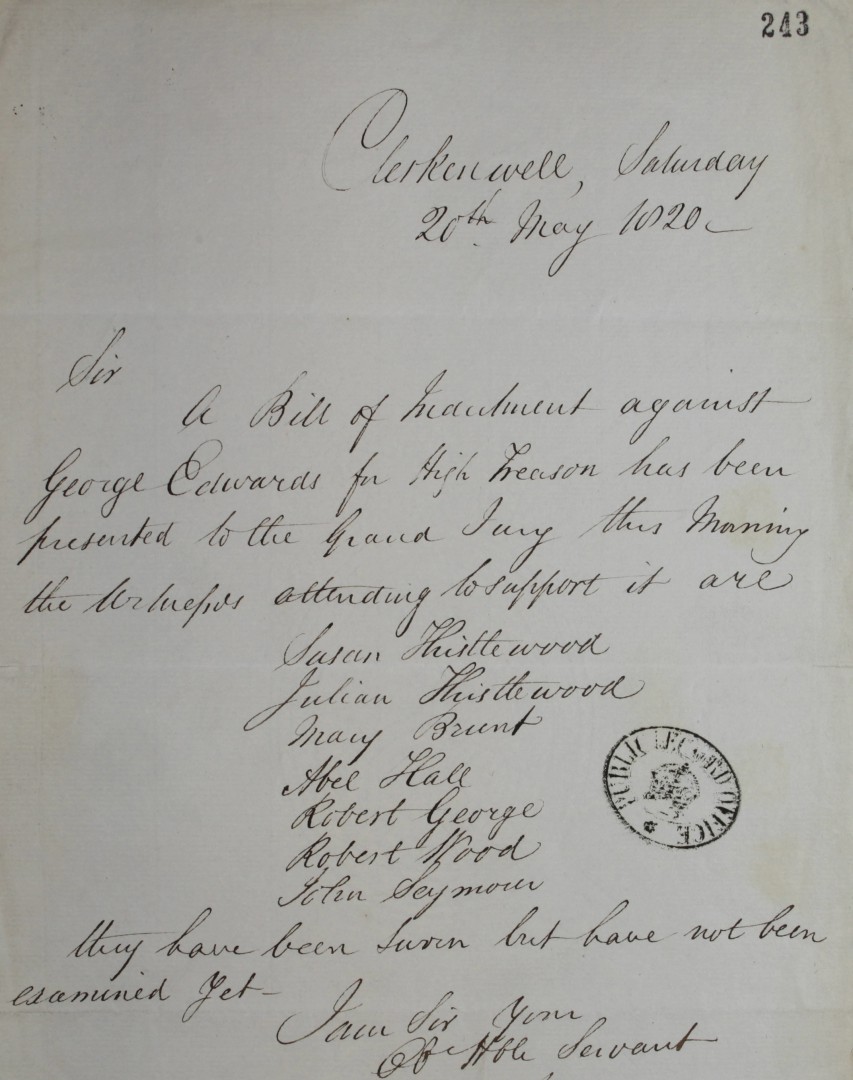 243
Clerkenwell, Saturday
20th May 1820
Sir
A Bill of Indictment against
George Edwards for High Treason has been
presented to the Grand Jury this Morning
the Witnesses attending to support it are
Susan Thistlewood
Julian Thistlewood
Mary Brunt
Abel Hall
Robert George
Robert Wood
John Seymour
PUBLIC RECORD OFFICE
they have been sworn but have not been
examined Yet -
I am Sir Your
Obt Hble Servant